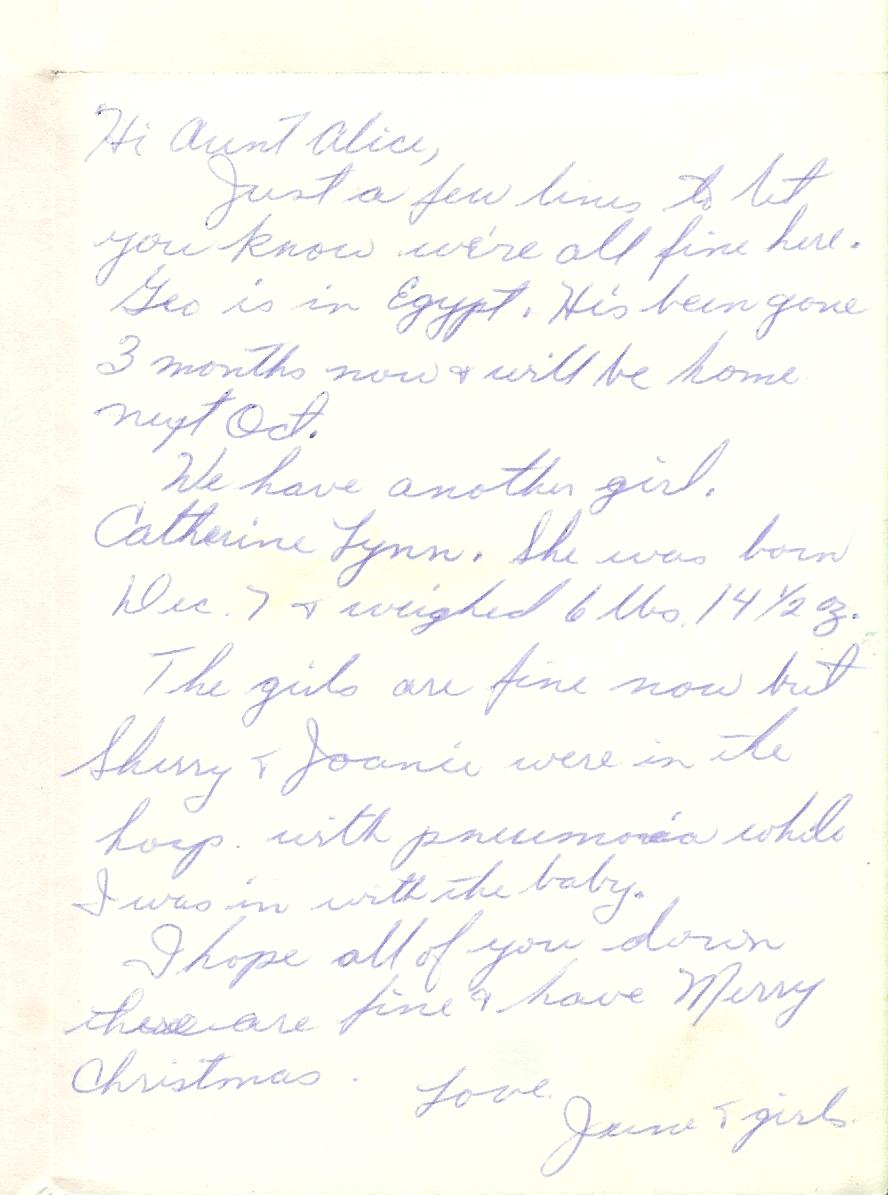 Hi Aunt Alice,
Just a few lines to let
you know we're all fine here.
Geo is in Egypt. He's been gone
3 months now & will be home
next Oct.
We have another girl.
Catherine Lynn. She was born
Dec. 7 & weighed 6 lbs. 14 1/2 oz.
The girls are fine now but
Sherry & Joanie were in the
hosp. with pneumonia while
I was in with the baby.
I hope all of you down
there are fine & have Merry
Christmas.
Love.
June & girls.